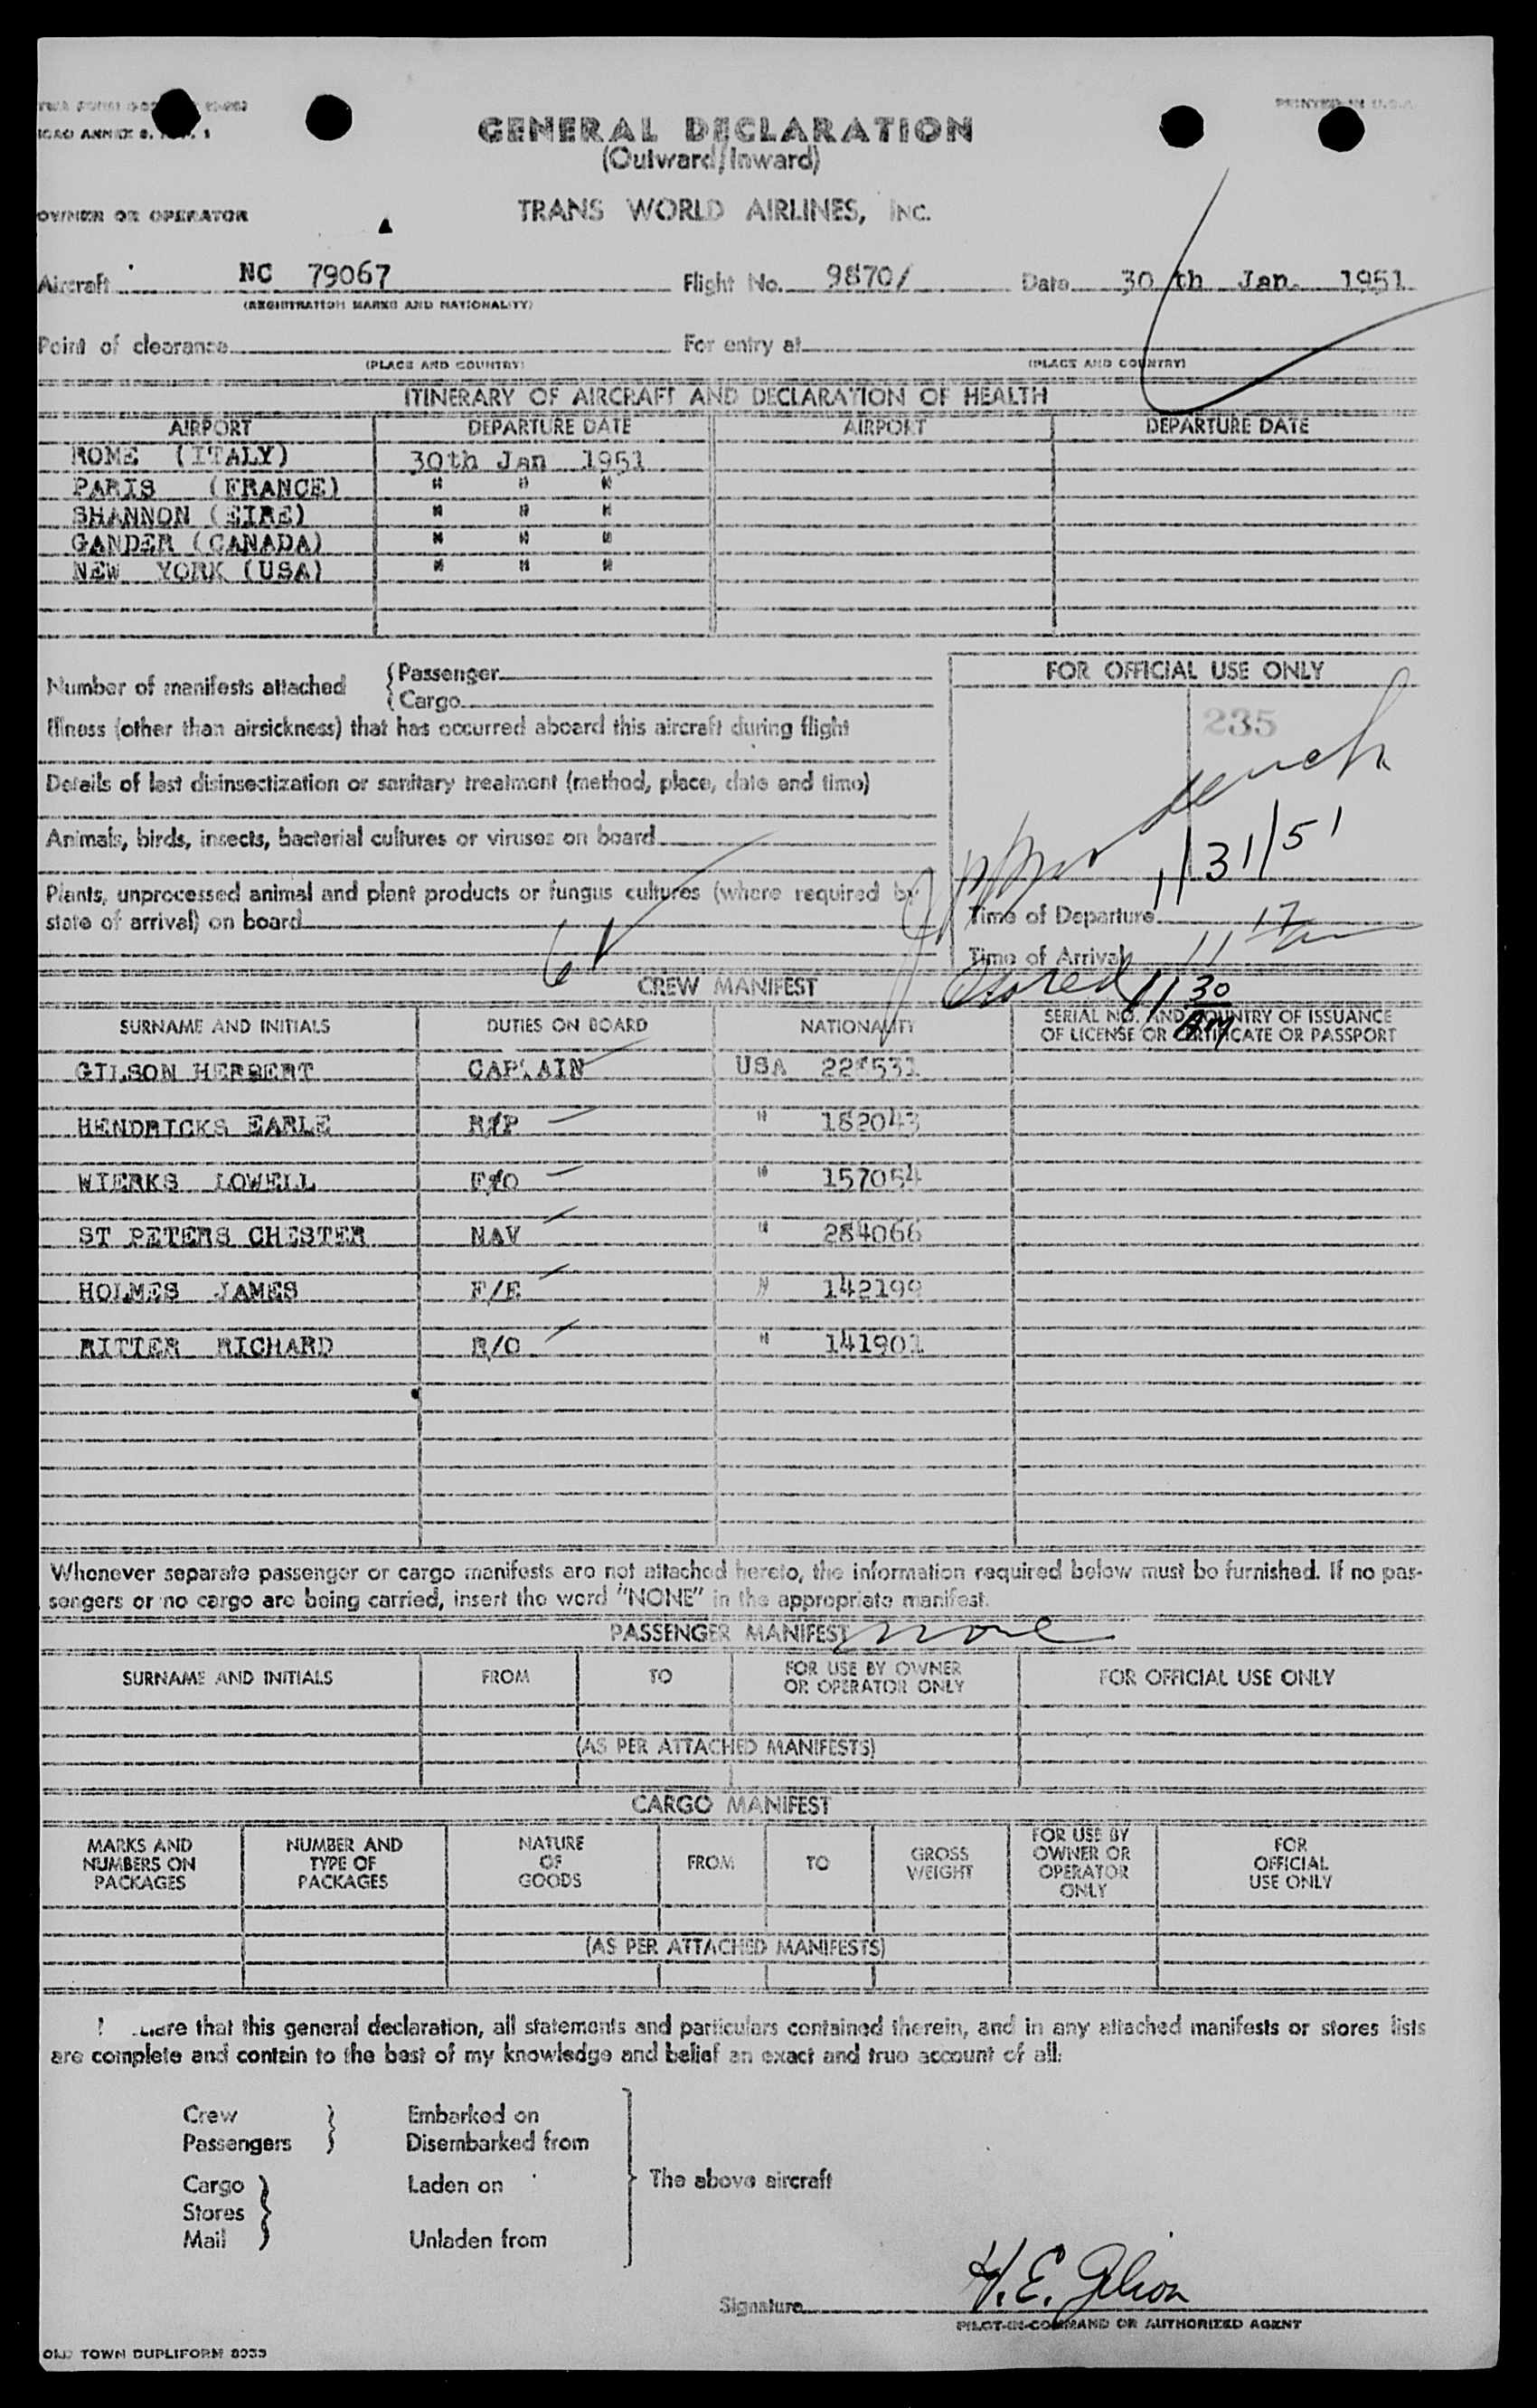 ICAO ANNEX 9,
PRINTED IN U.S.A.
GENERAL DECLARATION
(Outward/Inward)
OWNER OR OPERATOR
TRANS WORLD AIRLINES, INC.
Aircraft NC 79067 Flight No. 9870/ Date 30 th Jan. 1951
(REGISTRATION MARKS AND NATIONALITY)
Point of clearance For entry at
(PLACE AND COUNTRY) (PLACE AND COUNTRY)
ITINERARY OF AIRCRAFT AND DECLARATION OF HEALTH
AIRPORT DEPARTURE DATE AIRPORT DEPARTURE DATE
ROME (ITALY) 30th Jan 1951
PARIS (FRANCE) " " "
SHANNON (EIRE) " " "
GANDER (CANADA) " " "
NEW YORK (USA) " " "
Number of manifests attached { Passenger
{ Cargo
FOR OFFICIAL USE ONLY
235
Illness (other than airsickness) that has occurred aboard this aircraft during flight
Details of last disinsectization or sanitary treatment (method, place, date and time)
Animals, birds, insects, bacterial cultures or viruses on board
1/31/51
Plants, unprocessed animal and plant products or fungus cultures (where required by
state of arrival) on board
Time of Departure
Time of Arrival 11 17
6
CREW MANIFEST
11 30 AM
SURNAME AND INITIALS DUTIES ON BOARD NATIONALITY SERIAL NO. AND COUNTRY OF ISSUANCE
OF LICENSE OR CERTIFICATE OR PASSPORT
GILSON HERBERT CAPTAIN USA
HENDRICKS EARLE R/P " 182043
WIERKS LOWELL F/O " 157054
ST PETERS CHESTER NAV " 284066
HOLMES JAMES F/E " 142199
RITTER RICHARD R/O " 141901
Whenever separate passenger or cargo manifests are not attached hereto, the information required below must be furnished. If no pas-
sengers or no cargo are being carried, insert the word "NONE" in the appropriate manifest.
PASSENGER MANIFEST none
SURNAME AND INITIALS FROM TO FOR USE BY OWNER
OR OPERATOR ONLY FOR OFFICIAL USE ONLY
(AS PER ATTACHED MANIFESTS)
CARGO MANIFEST
MARKS AND
NUMBERS ON
PACKAGES
NUMBER AND
TYPE OF
PACKAGES
NATURE
OF
GOODS
FROM
TO
GROSS
WEIGHT
FOR USE BY
OWNER OR
OPERATOR
ONLY
FOR
OFFICIAL
USE ONLY
(AS PER ATTACHED MANIFESTS)
I that this general declaration, all statements and particulars contained therein, and in any attached manifests or stores lists
are complete and contain to the best of my knowledge and belief an exact and true account of all:
Crew } Embarked on
Passengers } Disembarked from
The above aircraft
Cargo } Laden on
Stores }
Mail } Unladen from
Signature H. E. Gilson
PILOT-IN-COMMAND OR AUTHORIZED AGENT
OLD TOWN DUPLIFORM